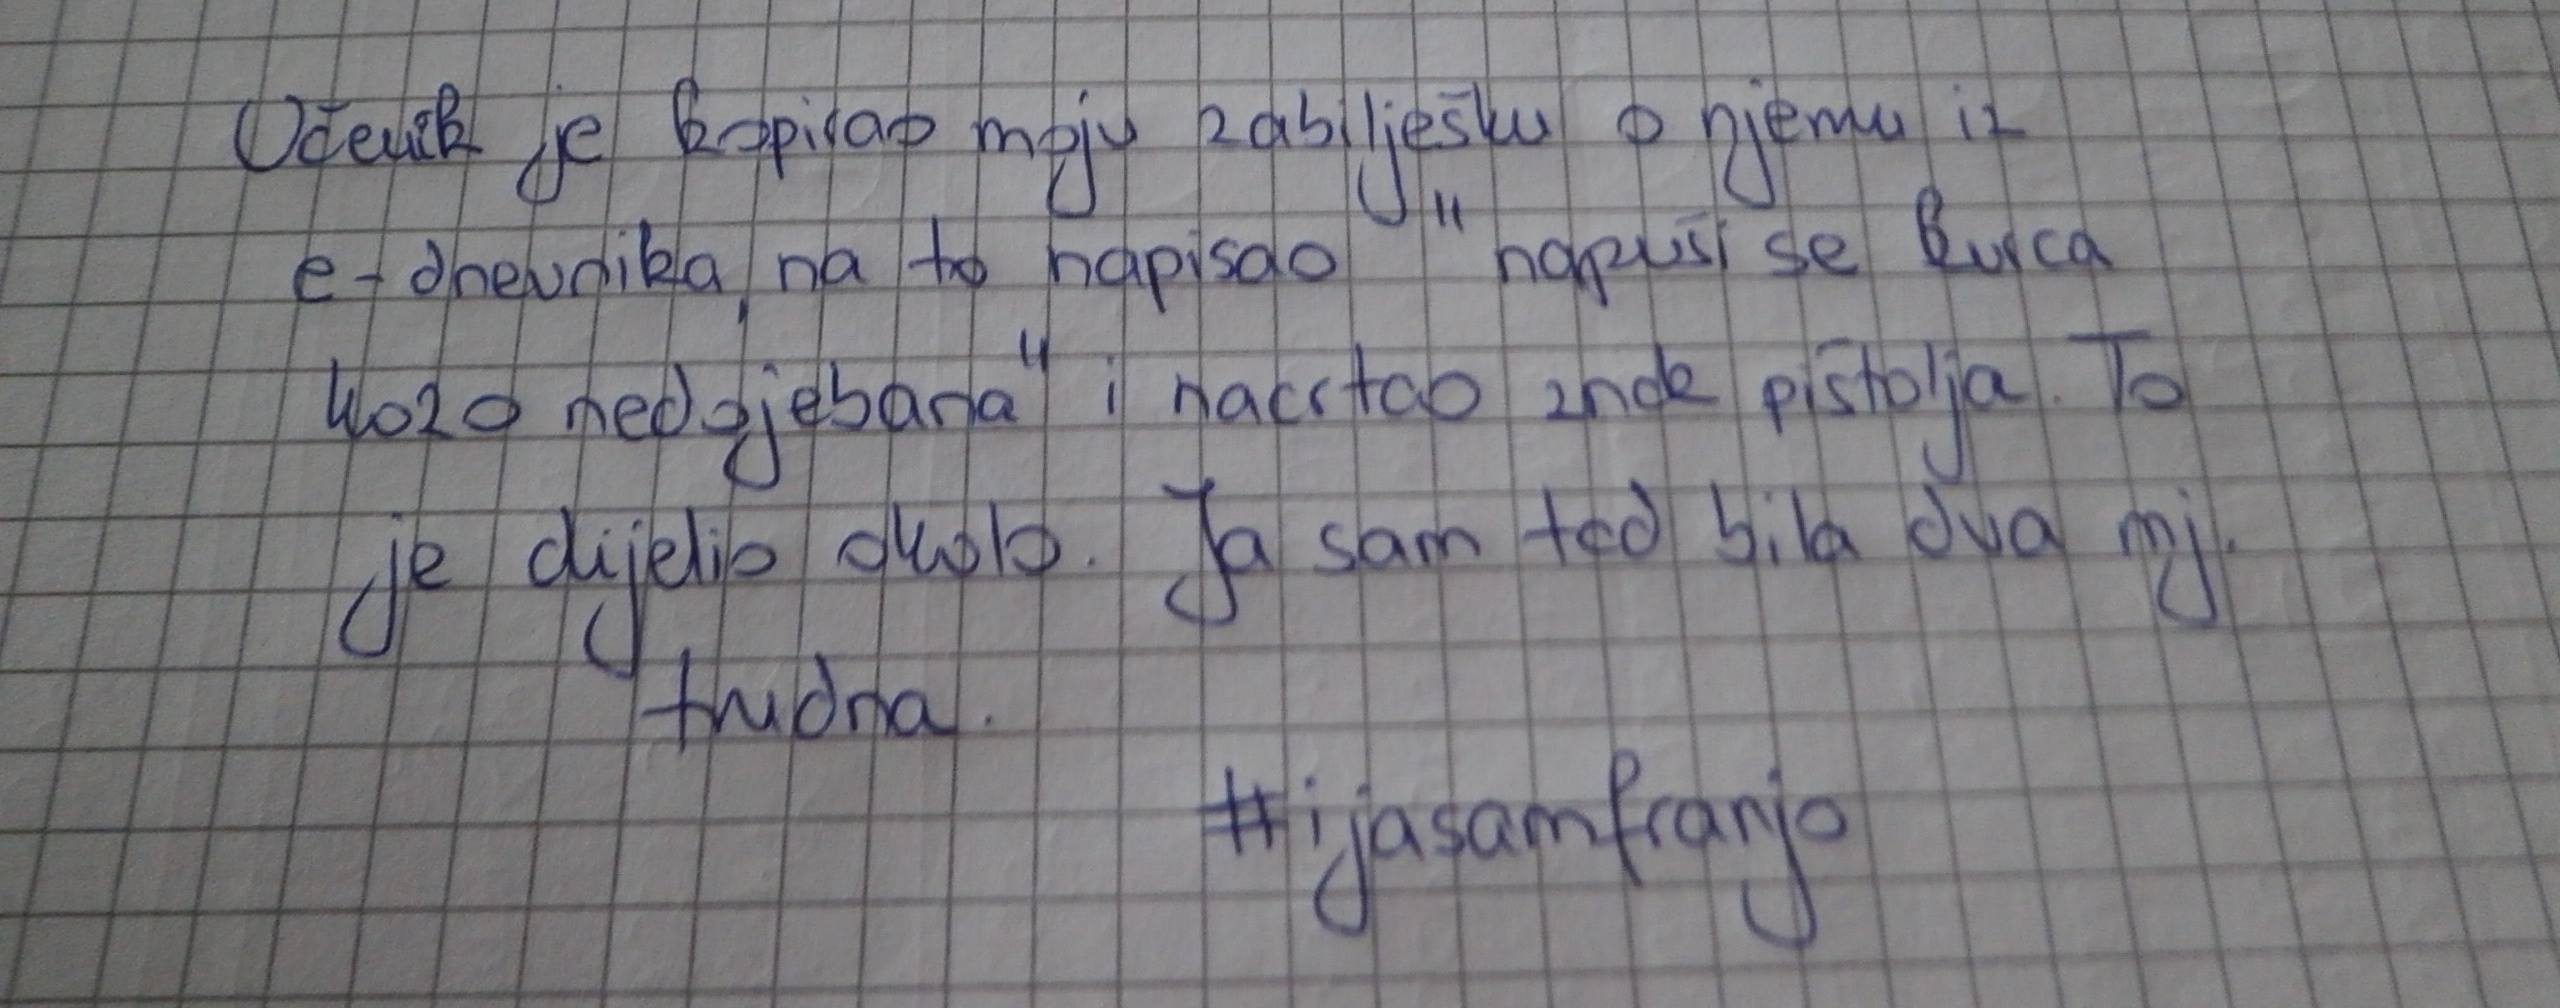 Učenik je kopirao moju zabilješku o njemu iz
e-dnevnika, na to napisao "napuši se kurca
kozo nedojebana" i nacrtao znak pištolja. To
je dijelio okolo. Ja sam tad bila dva mj.
trudna.
#ijasamfranjo